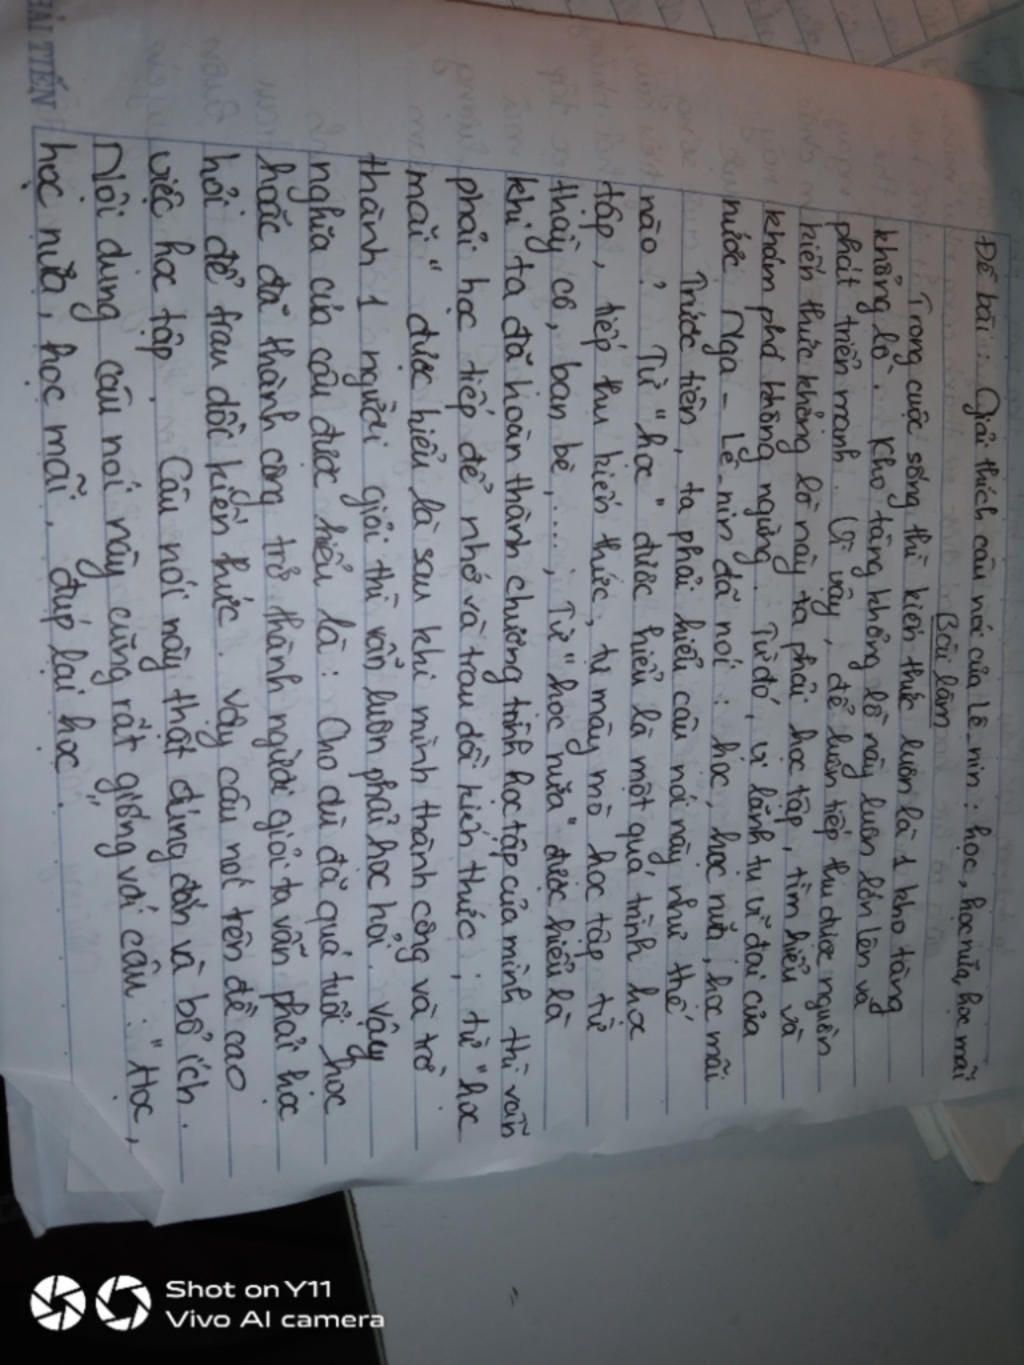 HẢI TIẾN
Đề bài: Giải thích câu nói của Lê-nin: học, học nữa, học mãi
Bài làm
Trong cuộc sống thì kiến thức luôn là 1 kho tàng
khổng lồ. Kho tàng khổng lồ này luôn lớn lên và
phát triển mạnh. Vì vậy, để luôn tiếp thu được nguồn
kiến thức khổng lồ này ta phải học tập, tìm hiểu và
khám phá không ngừng. Từ đó, vị lãnh tụ vĩ đại của
nước Nga - Lê-nin đã nói: học, học nữa, học mãi.
Trước tiên, ta phải hiểu câu nói này như thế
nào? Từ "học" được hiểu là một quá trình học
tập, tiếp thu kiến thức, tự mày mò học tập từ
thầy cô, bạn bè,....; Từ "học nữa" được hiểu là
khi ta đã hoàn thành chương trình học tập của mình thì vẫn
phải học tiếp để nhớ và trau dồi kiến thức; từ "học
mãi" được hiểu là sau khi mình thành công và trở
thành 1 người giỏi thì vẫn luôn phải học hỏi. Vậy
nghĩa của câu được hiểu là: Cho dù đã quá tuổi học
hoặc đã thành công trở thành người giỏi ta vẫn phải học
hỏi để trau dồi kiến thức. Vậy câu nói trên đề cao
việc học tập. Câu nói này thật đúng đắn và bổ ích.
Nội dung câu nói này cũng rất giống với câu: "Học,
học nữa, học mãi, đúp lại học".
Shot on Y11
Vivo AI camera